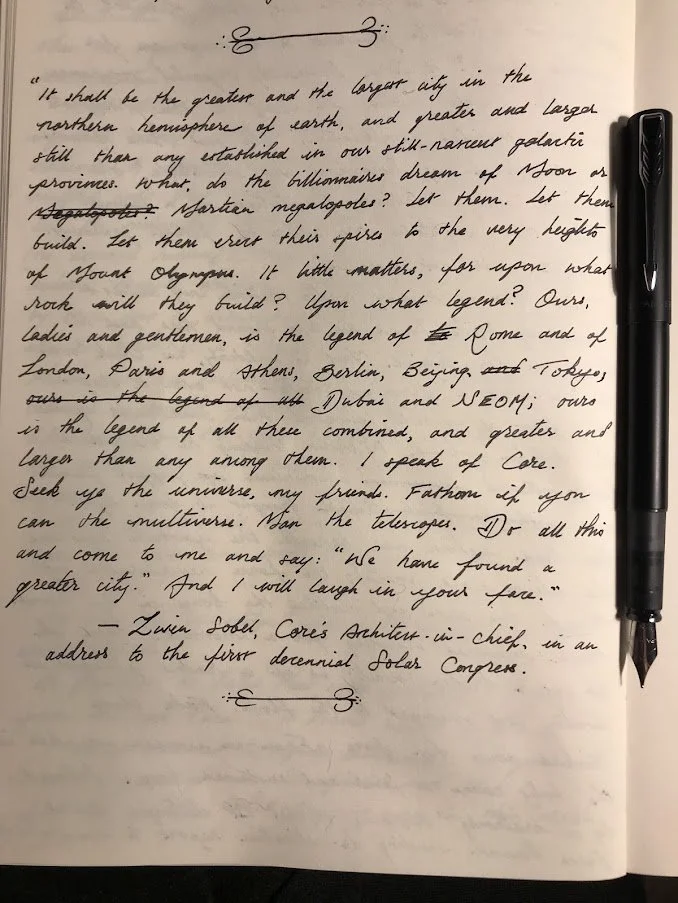 "It shall be the greatest and the largest city in the
northern hemisphere of earth, and greater and larger
still than any established in our still-nascent galactic
provinces. What, do the billionnaires dream of Moon or
Megalopoles? Martian megalopoles? Let them. Let them
build. Let them erect their spires to the very heights
of Mount Olympus. It little matters, for upon what
rock will they build? Upon what legend? Ours,
ladies and gentlemen, is the legend of Rome and of
London, Paris and Athens, Berlin, Beijing, and Tokyo,
ours is the legend of all Dubai and NEOM; ours
is the legend of all these combined, and greater and
larger than any among them. I speak of Core.
Seek ye the universe, my friends. Fathom if you
can the multiverse. Man the telescopes. Do all this
and come to me and say: "We have found a
greater city." And I will laugh in your face."
— Sobel, Core's Architect-in-chief, in an
address to the first decennial Solar Congress.